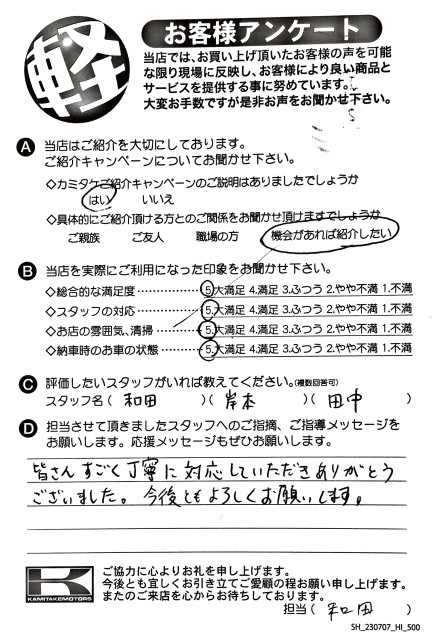 軽
お客様アンケート
当店では、お買い上げ頂いたお客様の声を可能
な限り現場に反映し、お客様により良い商品と
サービスを提供する事に努めています。
大変お手数ですが是非お声をお聞かせ下さい。
A 当店はご紹介を大切にしております。
ご紹介キャンペーンについてお聞かせ下さい。
◇カミタケご紹介キャンペーンのご説明はありましたでしょうか
はい いいえ
◇具体的にご紹介頂ける方とのご関係をお聞かせ頂けますでしょうか
ご親族 ご友人 職場の方 機会があれば紹介したい
B 当店を実際にご利用になった印象をお聞かせ下さい。
◇総合的な満足度………… 5.大満足 4.満足 3.ふつう 2.やや不満 1.不満
◇スタッフの対応………… 5.大満足 4.満足 3.ふつう 2.やや不満 1.不満
◇お店の雰囲気、清掃…… 5.大満足 4.満足 3.ふつう 2.やや不満 1.不満
◇納車時のお車の状態…… 5.大満足 4.満足 3.ふつう 2.やや不満 1.不満
C 評価したいスタッフがいれば教えてください。(複数回答可)
スタッフ名( 和田 )( 岸本 )( 田中 )
D 担当させて頂きましたスタッフへのご指摘、ご指導メッセージを
お願いします。応援メッセージもぜひお願いします。
皆さんすごく丁寧に対応していただきありがとう
ございました。今後ともよろしくお願いします。
KAMITAKEMOTORS
ご協力に心よりお礼を申し上げます。
今後とも宜しくお引き立てご愛顧の程お願い申し上げます。
またのご来店を心からお待ちしております。
担当( 和田 )
SH_230707_HI_500